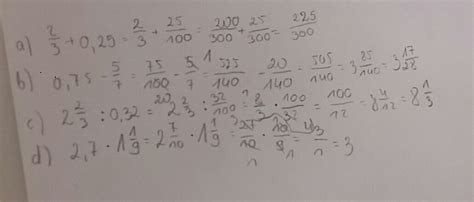 a) 2/3 + 0,25 = 2/3 + 25/100 = 200/300 + 25/300 = 225/300
b) 0,75 - 5/7 = 75/100 - 5/7 = 525/140 - 20/140 = 505/140 = 3 85/140 = 3 17/28
c) 2 2/3 : 0,32 = 2 2/3 : 32/100 = 8/3 · 100/32 = 100/12 = 8 4/12 = 8 1/3
d) 2,7 · 1 1/9 = 2 7/10 · 1 1/9 = 27/10 · 10/9 = 3/1 = 3